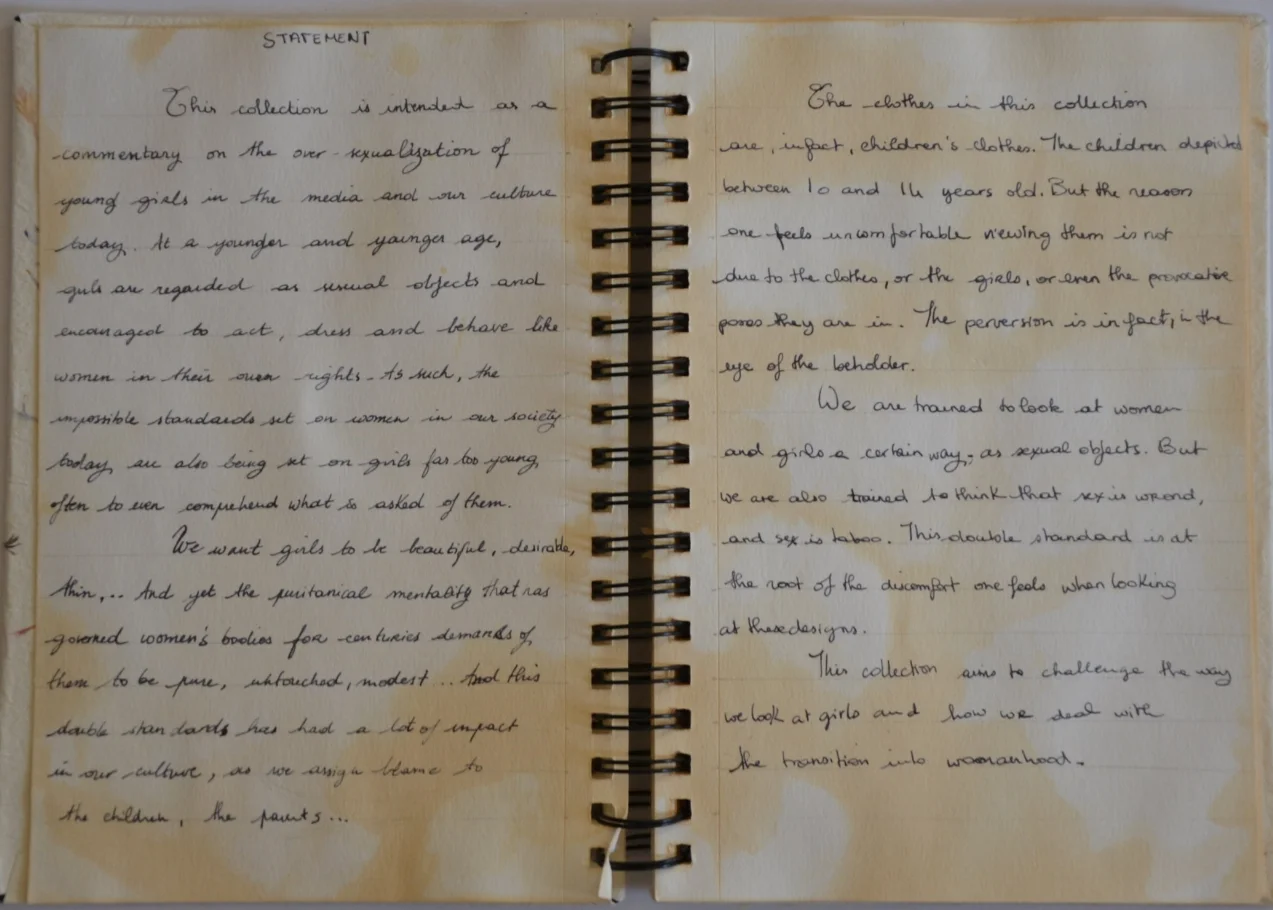 STATEMENT
This collection is intended as a
commentary on the over-sexualization of
young girls in the media and our culture
today. At a younger and younger age,
girls are regarded as sexual objects and
encouraged to act, dress and behave like
women in their own rights. As such, the
impossible standards set on women in our society
today, are also being set on girls far too young,
often to even comprehend what is asked of them.
We want girls to be beautiful, desirable,
thin,.. And yet the puritanical mentality that has
governed women's bodies for centuries demands of
them to be pure, untouched, modest.. And this
double standards has had a lot of impact
in our culture, as we assign blame to
the children, the parents...
The clothes in this collection
are, infact, children's clothes. The children depicted
between 10 and 14 years old. But the reason
one feels uncomfortable viewing them is not
due to the clothes, or the girls, or even the provocative
poses they are in. The perversion is in fact, in the
eye of the beholder.
We are trained to look at women
and girls a certain way, as sexual objects. But
we are also trained to think that sex is wrond,
and sex is taboo. This double standard is at
the root of the discomfort one feels when looking
at these designs.
This collection aims to challenge the way
we look at girls and how we deal with
the transition into womanhood.